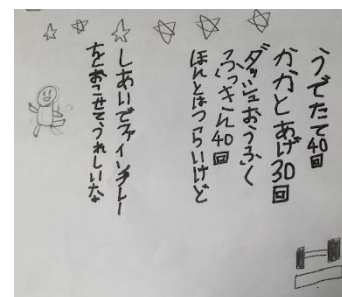 うでたて40回
かかとあげ30回
ダッシュおうふく
ふっきん40回
ほんとはつらいけど
しあいでファインプレー
をおこせてうれしいな